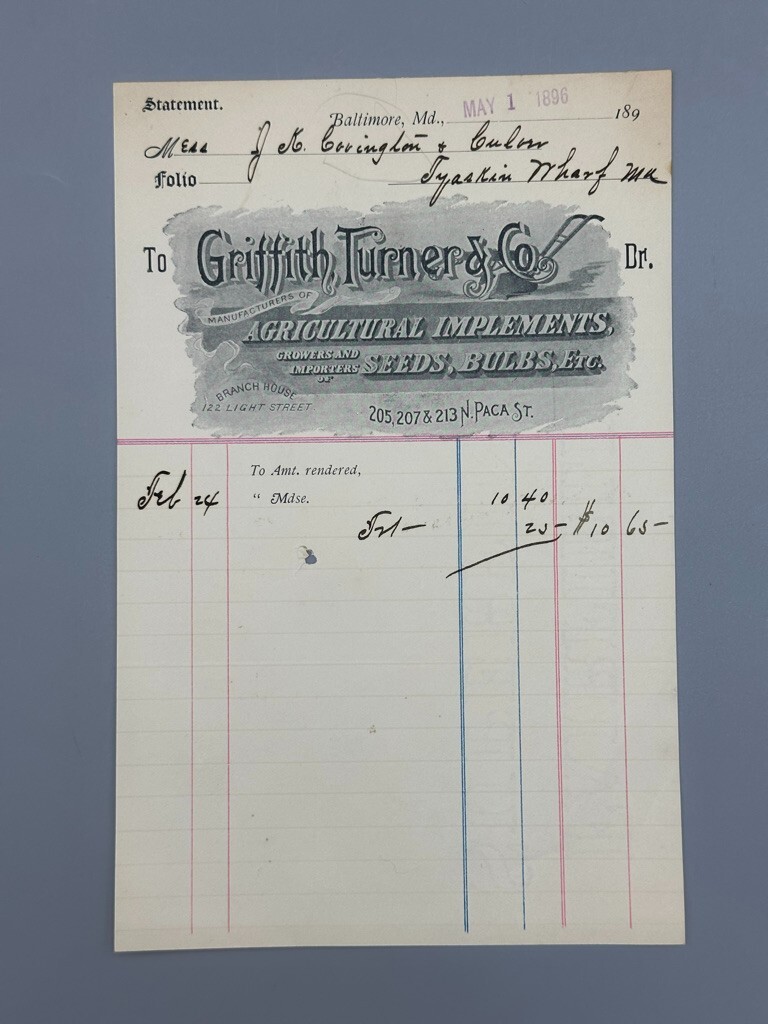 Statement.
Baltimore, Md., MAY 1 1896 189
Mess J. K. Covington &
Folio Tyaskin Wharf Md
To Griffith, Turner & Co. Dr.
MANUFACTURERS OF
AGRICULTURAL IMPLEMENTS,
GROWERS AND
IMPORTERS
OF SEEDS, BULBS, ETC.
BRANCH HOUSE
122 LIGHT STREET
205, 207 & 213 N. PACA ST.
To Amt. rendered,
Feb 24 " Mdse. 10 40
Frt — 25 — $10 65 —